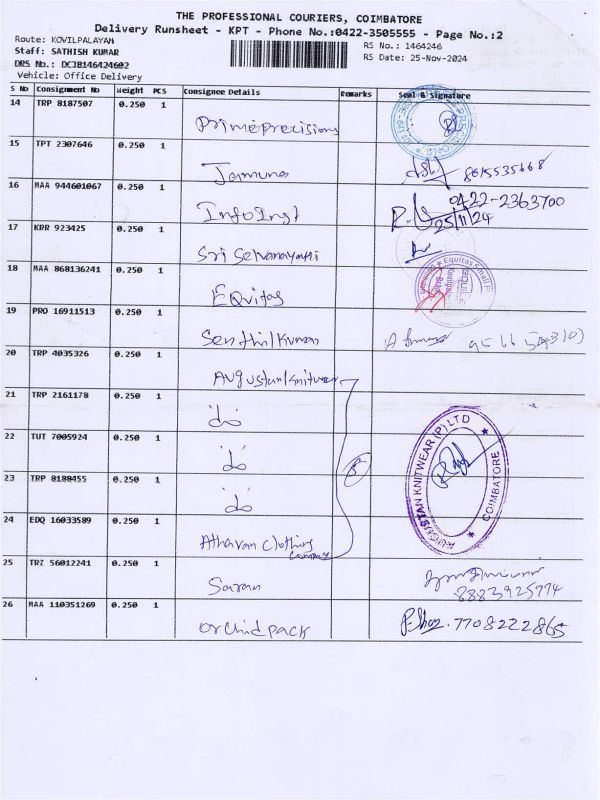 THE PROFESSIONAL COURIERS, COIMBATORE
Delivery Runsheet - KPT - Phone No.:0422-3505555 - Page No.:2
Route: KOVILPALAYAM
RS No.: 1464246
Staff: SATHISH KUMAR
RS Date: 25-Nov-2024
DRS No.: DCJB146424602
Vehicle: Office Delivery
S No Consignment No Weight PCS Consignee Details Remarks Seal & Signature
14 TRP 8187507 0.250 1
Primeprecisions
15 TPT 2307646 0.250 1
Jamuna
16 MAA 944601067 0.250 1
InfoInst 0422-2363700
25/11/24
17 KRR 923425 0.250 1
Sri Selvanayaki
18 MAA 868136241 0.250 1
Equitas Small Fi
EQuitas
19 PRO 16911513 0.250 1
Senthil Kumar
20 TRP 4035326 0.250 1
Augustan Knitwear
21 TRP 2161178 0.250 1
do
22 TUT 7005924 0.250 1
do
23 TRP 8188455 0.250 1
do
AUGUSTAN KNITWEAR (P) LTD
COIMBATORE
24 EDQ 16033589 0.250 1
Atharvan Clothing
Company
25 TRZ 56012241 0.250 1
Saran
8883925774
26 MAA 110351269 0.250 1
Orchidpack 7708222865